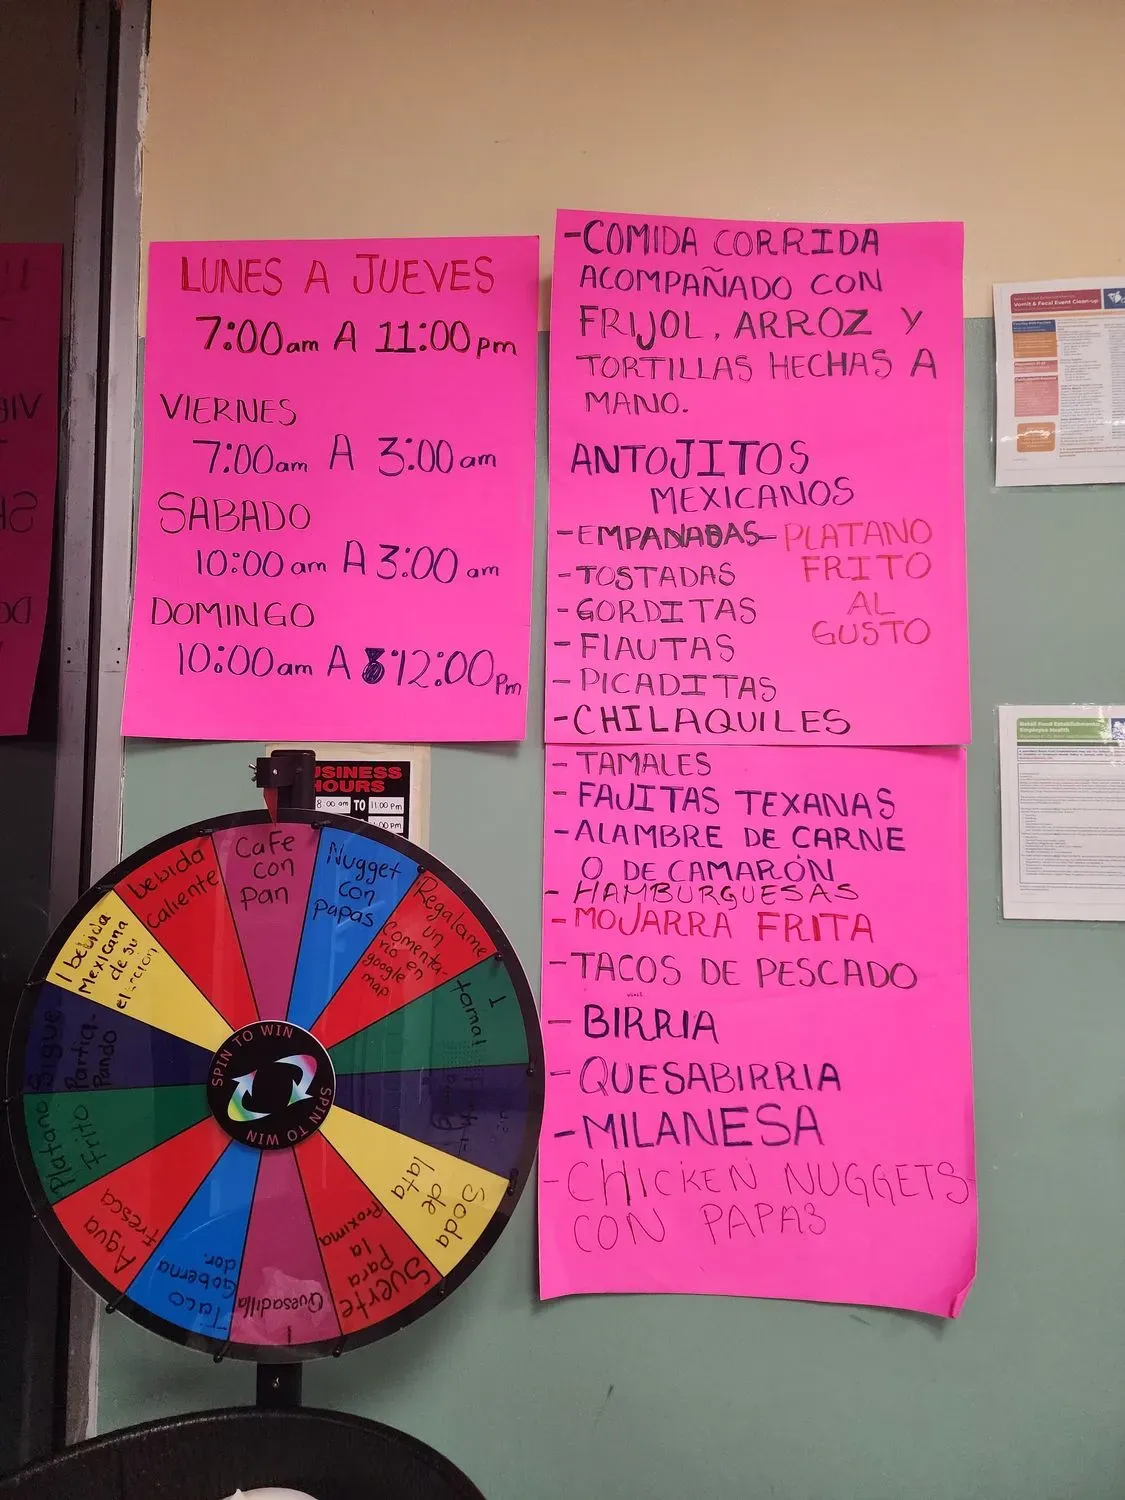 LUNES A JUEVES
7:00am A 11:00pm
VIERNES
7:00am A 3:00am
SABADO
10:00am A 3:00am
DOMINGO
10:00am A 12:00pm
-COMIDA CORRIDA
ACOMPAÑADO CON
FRIJOL, ARROZ Y
TORTILLAS HECHAS A
MANO.
ANTOJITOS
MEXICANOS
-EMPANADAS- PLATANO
FRITO
AL
GUSTO
-TOSTADAS
-GORDITAS
-FlAUTAS
-PICADITAS
-CHILAQUILES
-TAMALES
-FAJITAS TEXANAS
-ALAMBRE DE CARNE
O DE CAMARÓN
-HAMBURGUESAS
-MOJARRA FRITA
-TACOS DE PESCADO
-BIRRIA
-QUESABIRRIA
-MILANESA
-CHICKEN NUGGETS-
CON PAPAS
BUSINESS
HOURS
8:00 am TO 11:00 pm
CaFe
con
pan
Nugget
con
papas
Regalame
un
comenta-
rio en
google
map
1
tamal
Soda
de
lata
Suerte
Para
la
Proxima
1
Quesadilla
Taco
Goberna
dor.
Agua
fresca
Platano
Frito
Sigue
Partici-
Pando
1 bebida
Mexicana
de su
eleccion
bebida
caliente
SPIN TO WIN
SPIN TO WIN
Vomit & Fecal Event Clean-up
Retail Food Establishments:
Employee Health